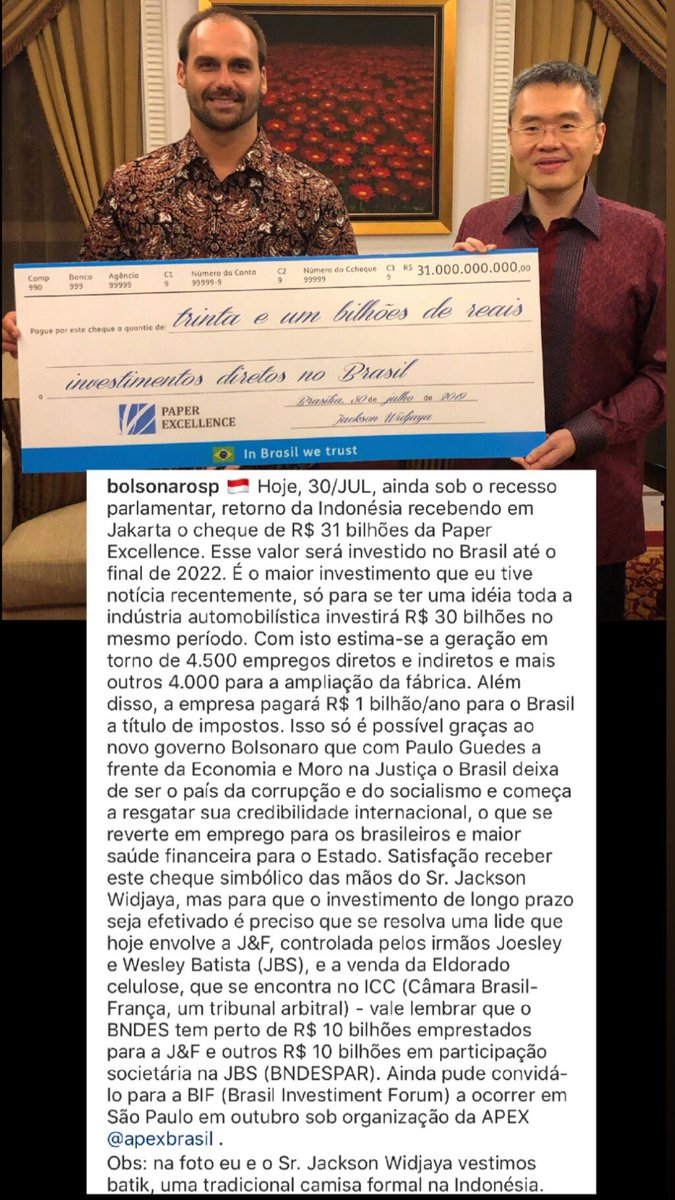 Comp Banco Agência C1 Número da Conta C2 Número do Ccheque C3 R$ 31.000.000.000,00
990 999 99999 9 99999-9 9 99999 9
Pague por este cheque a quantia de: trinta e um bilhões de reais
investimentos diretos no Brasil
a
Brasília, 30 de julho de 2019
Jackson Widjaya
PAPER
EXCELLENCE
In Brasil we trust
bolsonarosp 🇮🇩 Hoje, 30/JUL, ainda sob o recesso
parlamentar, retorno da Indonésia recebendo em
Jakarta o cheque de R$ 31 bilhões da Paper
Excellence. Esse valor será investido no Brasil até o
final de 2022. É o maior investimento que eu tive
notícia recentemente, só para se ter uma idéia toda a
indústria automobilística investirá R$ 30 bilhões no
mesmo período. Com isto estima-se a geração em
torno de 4.500 empregos diretos e indiretos e mais
outros 4.000 para a ampliação da fábrica. Além
disso, a empresa pagará R$ 1 bilhão/ano para o Brasil
a título de impostos. Isso só é possível graças ao
novo governo Bolsonaro que com Paulo Guedes a
frente da Economia e Moro na Justiça o Brasil deixa
de ser o país da corrupção e do socialismo e começa
a resgatar sua credibilidade internacional, o que se
reverte em emprego para os brasileiros e maior
saúde financeira para o Estado. Satisfação receber
este cheque simbólico das mãos do Sr. Jackson
Widjaya, mas para que o investimento de longo prazo
seja efetivado é preciso que se resolva uma lide que
hoje envolve a J&F, controlada pelos irmãos Joesley
e Wesley Batista (JBS), e a venda da Eldorado
celulose, que se encontra no ICC (Câmara Brasil-
França, um tribunal arbitral) - vale lembrar que o
BNDES tem perto de R$ 10 bilhões emprestados
para a J&F e outros R$ 10 bilhões em participação
societária na JBS (BNDESPAR). Ainda pude convidá-
lo para a BIF (Brasil Investiment Forum) a ocorrer em
São Paulo em outubro sob organização da APEX
@apexbrasil .
Obs: na foto eu e o Sr. Jackson Widjaya vestimos
batik, uma tradicional camisa formal na Indonésia.